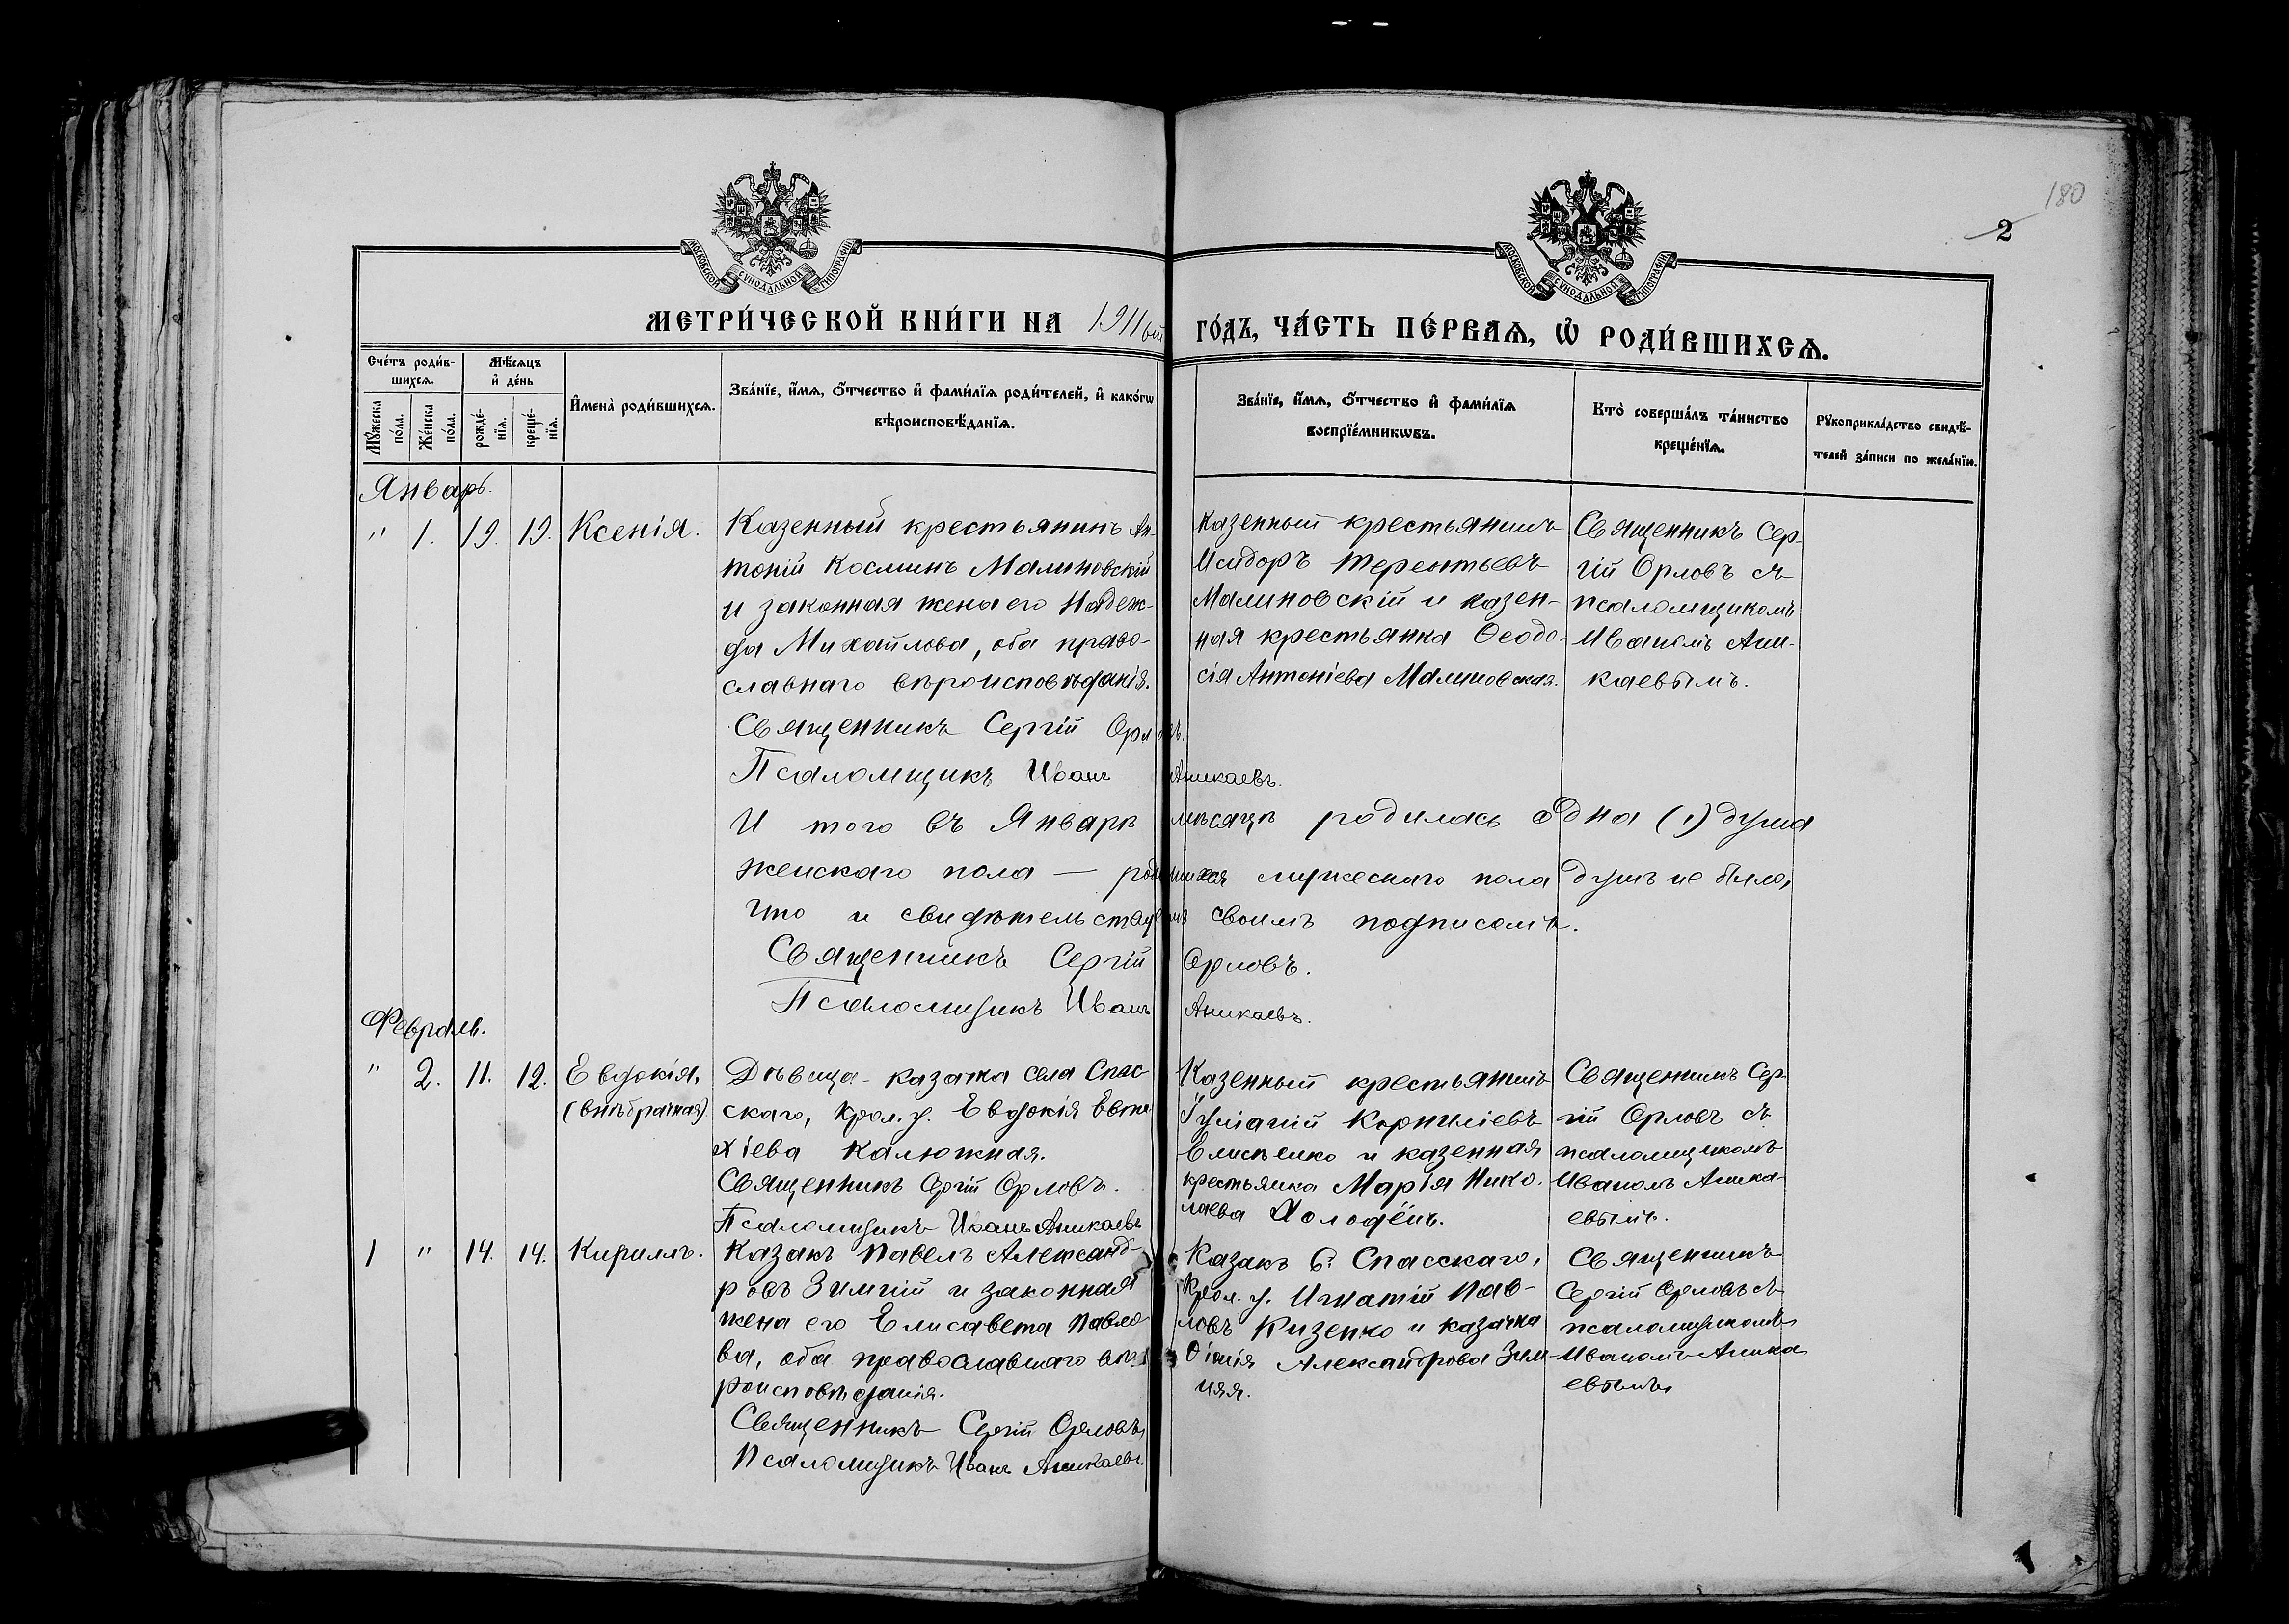 180
2
МОСКОВСКОЙ СѴНОДАЛЬНОЙ ТИПОГРАФІИ
МОСКОВСКОЙ СѴНОДАЛЬНОЙ ТИПОГРАФІИ
МЕТРИ́ЧЕСКОЙ КНИ́ГИ НА 1911ый ГО́ДЪ, ЧА́СТЬ ПЕ́РВАѦ, Ѡ҆ РОДИ́ВШИХСѦ.
Сче́тъ роди́в-
шихсѧ.
Мꙋ́жеска
по́ла.
Же́нска
по́ла.
Мѣ́сѧцъ
и҆ де́нь
рожде́-
нїѧ.
креще́-
нїѧ.
И҆мена̀ роди́вшихсѧ.
Зва́нїе, и҆́мѧ, ѻ҆́тчество и҆ фами́лїѧ роди́телей, и҆ како́гѡ
вѣроисповѣ́данїѧ.
Зва́нїе, и҆́мѧ, ѻ҆́тчество и҆ фами́лїѧ
воспрїе́мникѡвъ.
Кто̀ соверша́лъ та́инство
креще́нїѧ.
Рꙋкоприкла́дство свидѣ́-
телей за́писи по жела́нїю.
Январь.
" 1. 19. 19. Ксенія.
Казенный крестьянинъ Ан-
тоній Косминъ Малиновскій
и законная жена его Надеж-
да Михайлова, оба право-
славнаго вѣроисповѣданія.
Казенный крестьянинъ
Исидоръ Терентьевъ
Малиновскій и казен-
ная крестьянка Ѳеодо-
сія Антоніева Малиновская.
Священникъ Сер-
гій Орловъ съ
псаломщикомъ
Иваномъ Ани-
каевымъ.
Священникъ Сергій Орловъ.
Псаломщикъ Иванъ Аникаевъ.
И того въ Январѣ мѣсяцѣ родилась одна (1) душа
женскаго пола — родившихся мужескаго пола душъ не было,
что и свидѣтельствуемъ своимъ подписомъ.
Священникъ Сергій Орловъ.
Псаломщикъ Иванъ Аникаевъ.
Февраль.
" 2. 11. 12. Евдокія,
(внѣбрачная)
Дѣвица-казачка села Спас-
скаго, Крол. у. Евдокія Евти-
хіева Калюжная.
Священникъ Сергій Орловъ.
Псаломщикъ Иванъ Аникаевъ
Казенный крестьянинъ
Іуліаній Корниліевъ
Елисѣенко и казенная
крестьянка Марія Нико-
лаева Холодёнъ.
Священникъ Сер-
гій Орловъ съ
псаломщикомъ
Иваномъ Аника-
евымъ.
1 " 14. 14. Кириллъ.
Казакъ Павелъ Александ-
ровъ Зимній и законная
жена его Елисавета Павло-
ва, оба православнаго вѣ-
роисповѣданія.
Священникъ Сергій Орловъ,
Псаломщикъ Иванъ Аникаевъ.
Казакъ С. Спасскаго,
Крол. у. Игнатій Пав-
ловъ Кизенко и казачка
Александрова Зим-
няя.
Священникъ
Сергій Орловъ съ
псаломщикомъ
Иваномъ Аника
евымъ.